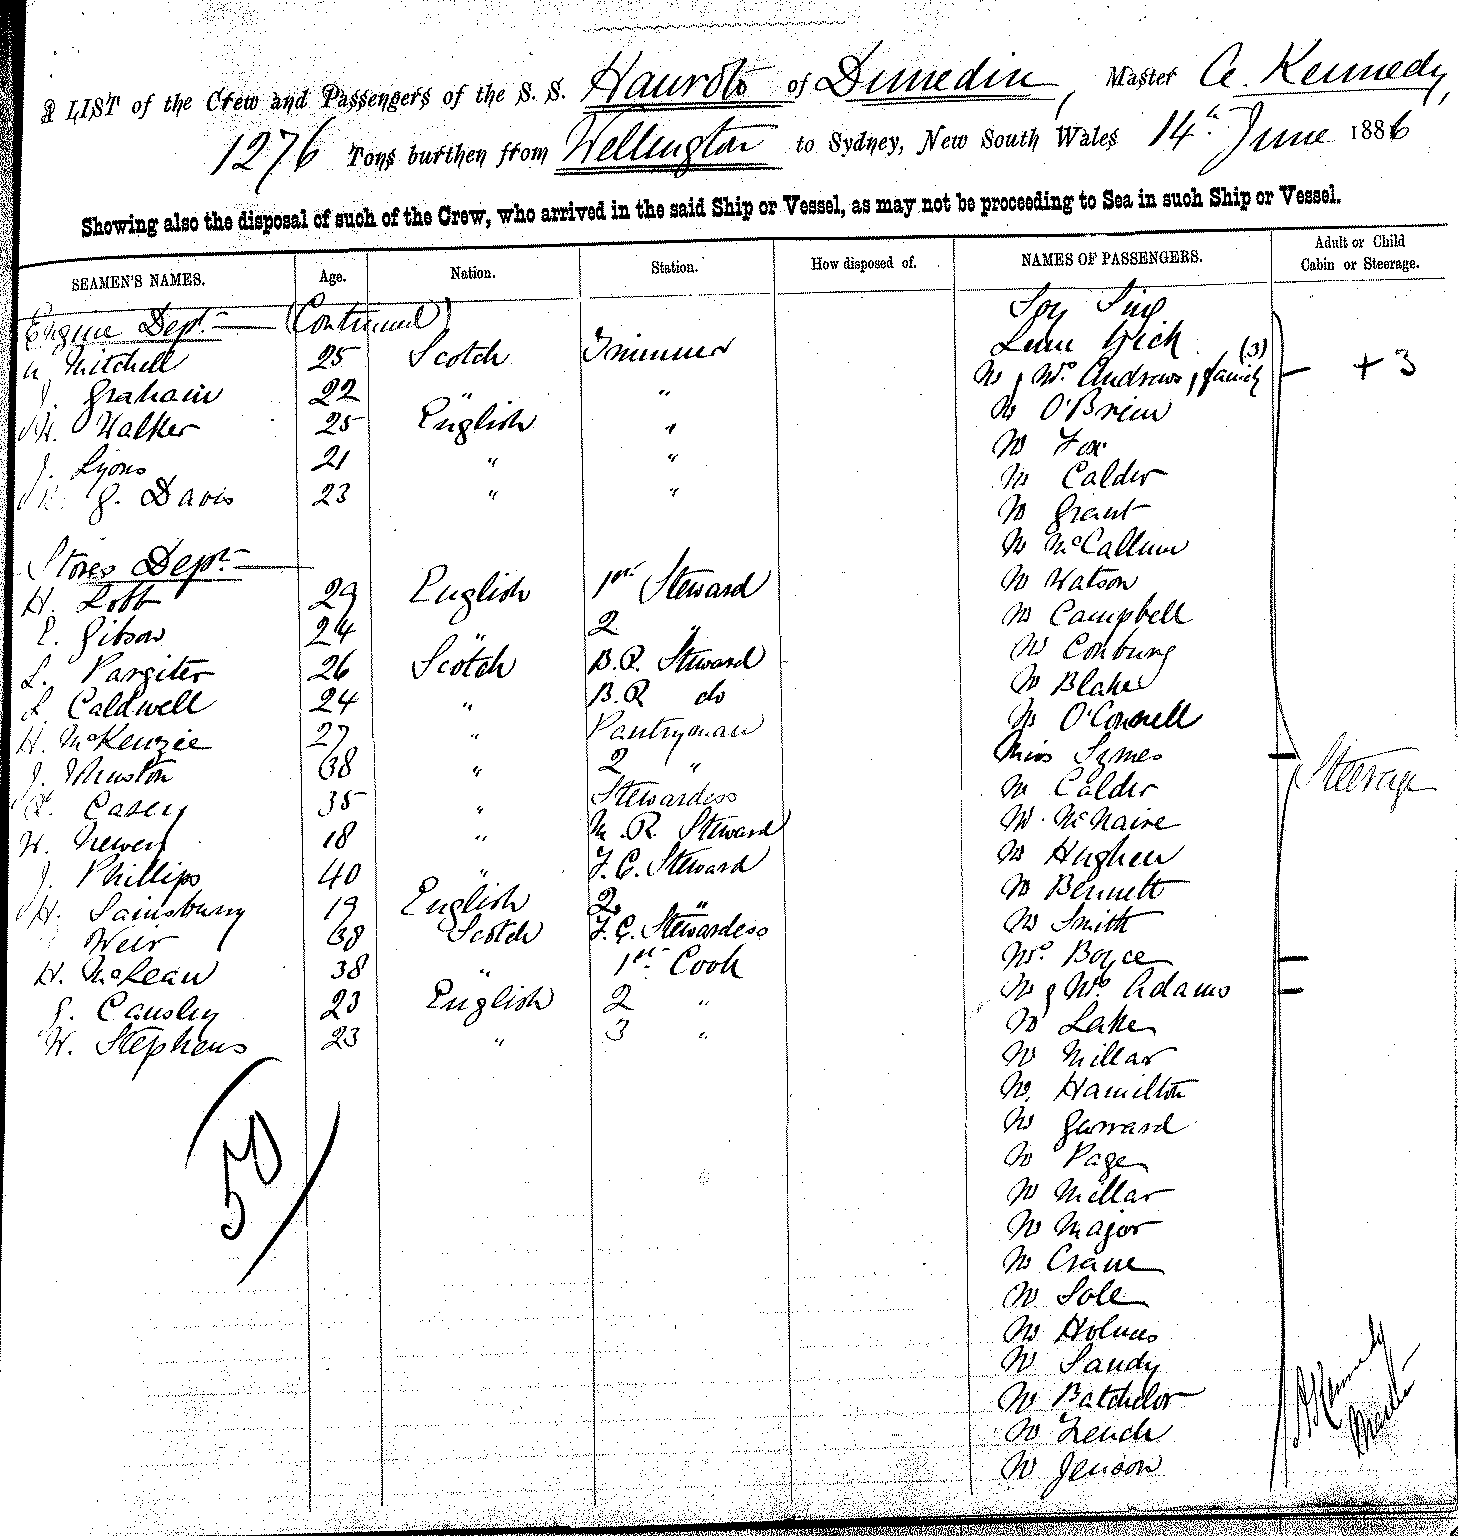 A LIST of the Crew and Passengers of the S. S. Hauroto of Dunedin, Master A. Kennedy,
1276 Tons burthen from Wellington to Sydney, New South Wales 14th June 1886
Showing also the disposal of such of the Crew, who arrived in the said Ship or Vessel, as may not be proceeding to Sea in such Ship or Vessel.
SEAMEN'S NAMES. Age. Nation. Station. How disposed of. NAMES OF PASSENGERS. Adult or Child Cabin or Steerage.
Engine Dept. (Continued)
Mitchell 25 Scotch Trimmer
J. Graham 22 " "
Walker 25 English "
J. Lyons 21 " "
G. Davis 23 " "
Stores Dept.
H. Lobb 29 English 1st Steward
E. Gibson 24 " 2 "
L. Pargiter 26 Scotch B.R. Steward
L. Caldwell 24 " B.R do
H. McKenzie 27 " Pantryman
J. Johnston 38 " 2 "
Casey 35 " Stewardess
H. Newey 18 " M.R. Steward
J. Phillips 40 " F.C. Steward
H. Sainsbury 19 English 2 "
Weir 38 Scotch F.C. Stewardess
H. McLean 38 " 1st Cook
G. Causley 23 English 2 "
W. Stephens 23 " 3 "
50
Soy Sing
Lum Hick
Mr & Mrs Andrews & family (3) + 3
Mr O'Brien
Mr Fox
Mr Calder
Mr Grant
Mr McCallum
Mr Watson
Mr Campbell
Mr Conburg
Mr Blake
Mr O'Connell
Miss Symes
Mr Calder
Mr McNaire
Mr Hughen
Mr Bennett
Mr Smith
Mrs Boyce
Mr & Mrs Adams
Mr Lake
Mr Millar
Mr Hamilton
Mr Garrard
Mr Page
Mr Millar
Mr Major
Mr Crane
Mr Sole
Mr Holmes
Mr Sandy
Mr Batchelor
Mr Leach
Mr Jenson
Steerage
A Kennedy
Master